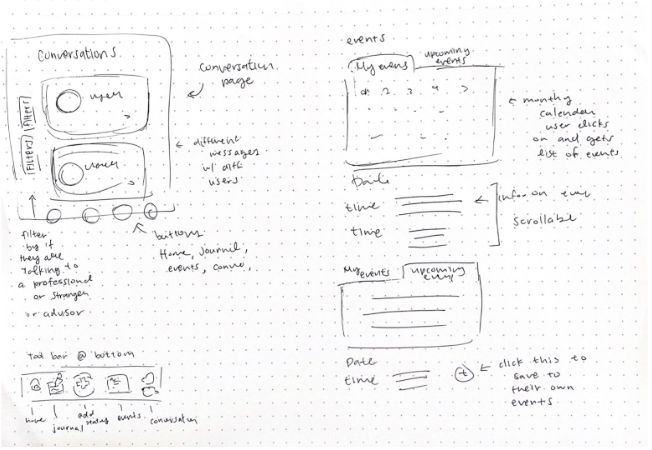 Conversations
user
Filters
Filters
user
conversation
page
different
messages
w/ diff
users
filter
by if
they are
talking to
a professional
or stranger
or advisor
buttons
Home, journal,
events, convo,
Tab bar @ bottom
home
journal
add
events
conversation
events
My events
upcoming
events
2 3 4 5
monthly
calendar
user clicks
on and gets
list of events
Date
time
time
info on event
scrollable
My
events
upcoming
events
Date
time
+
click this to
save to
their own
events